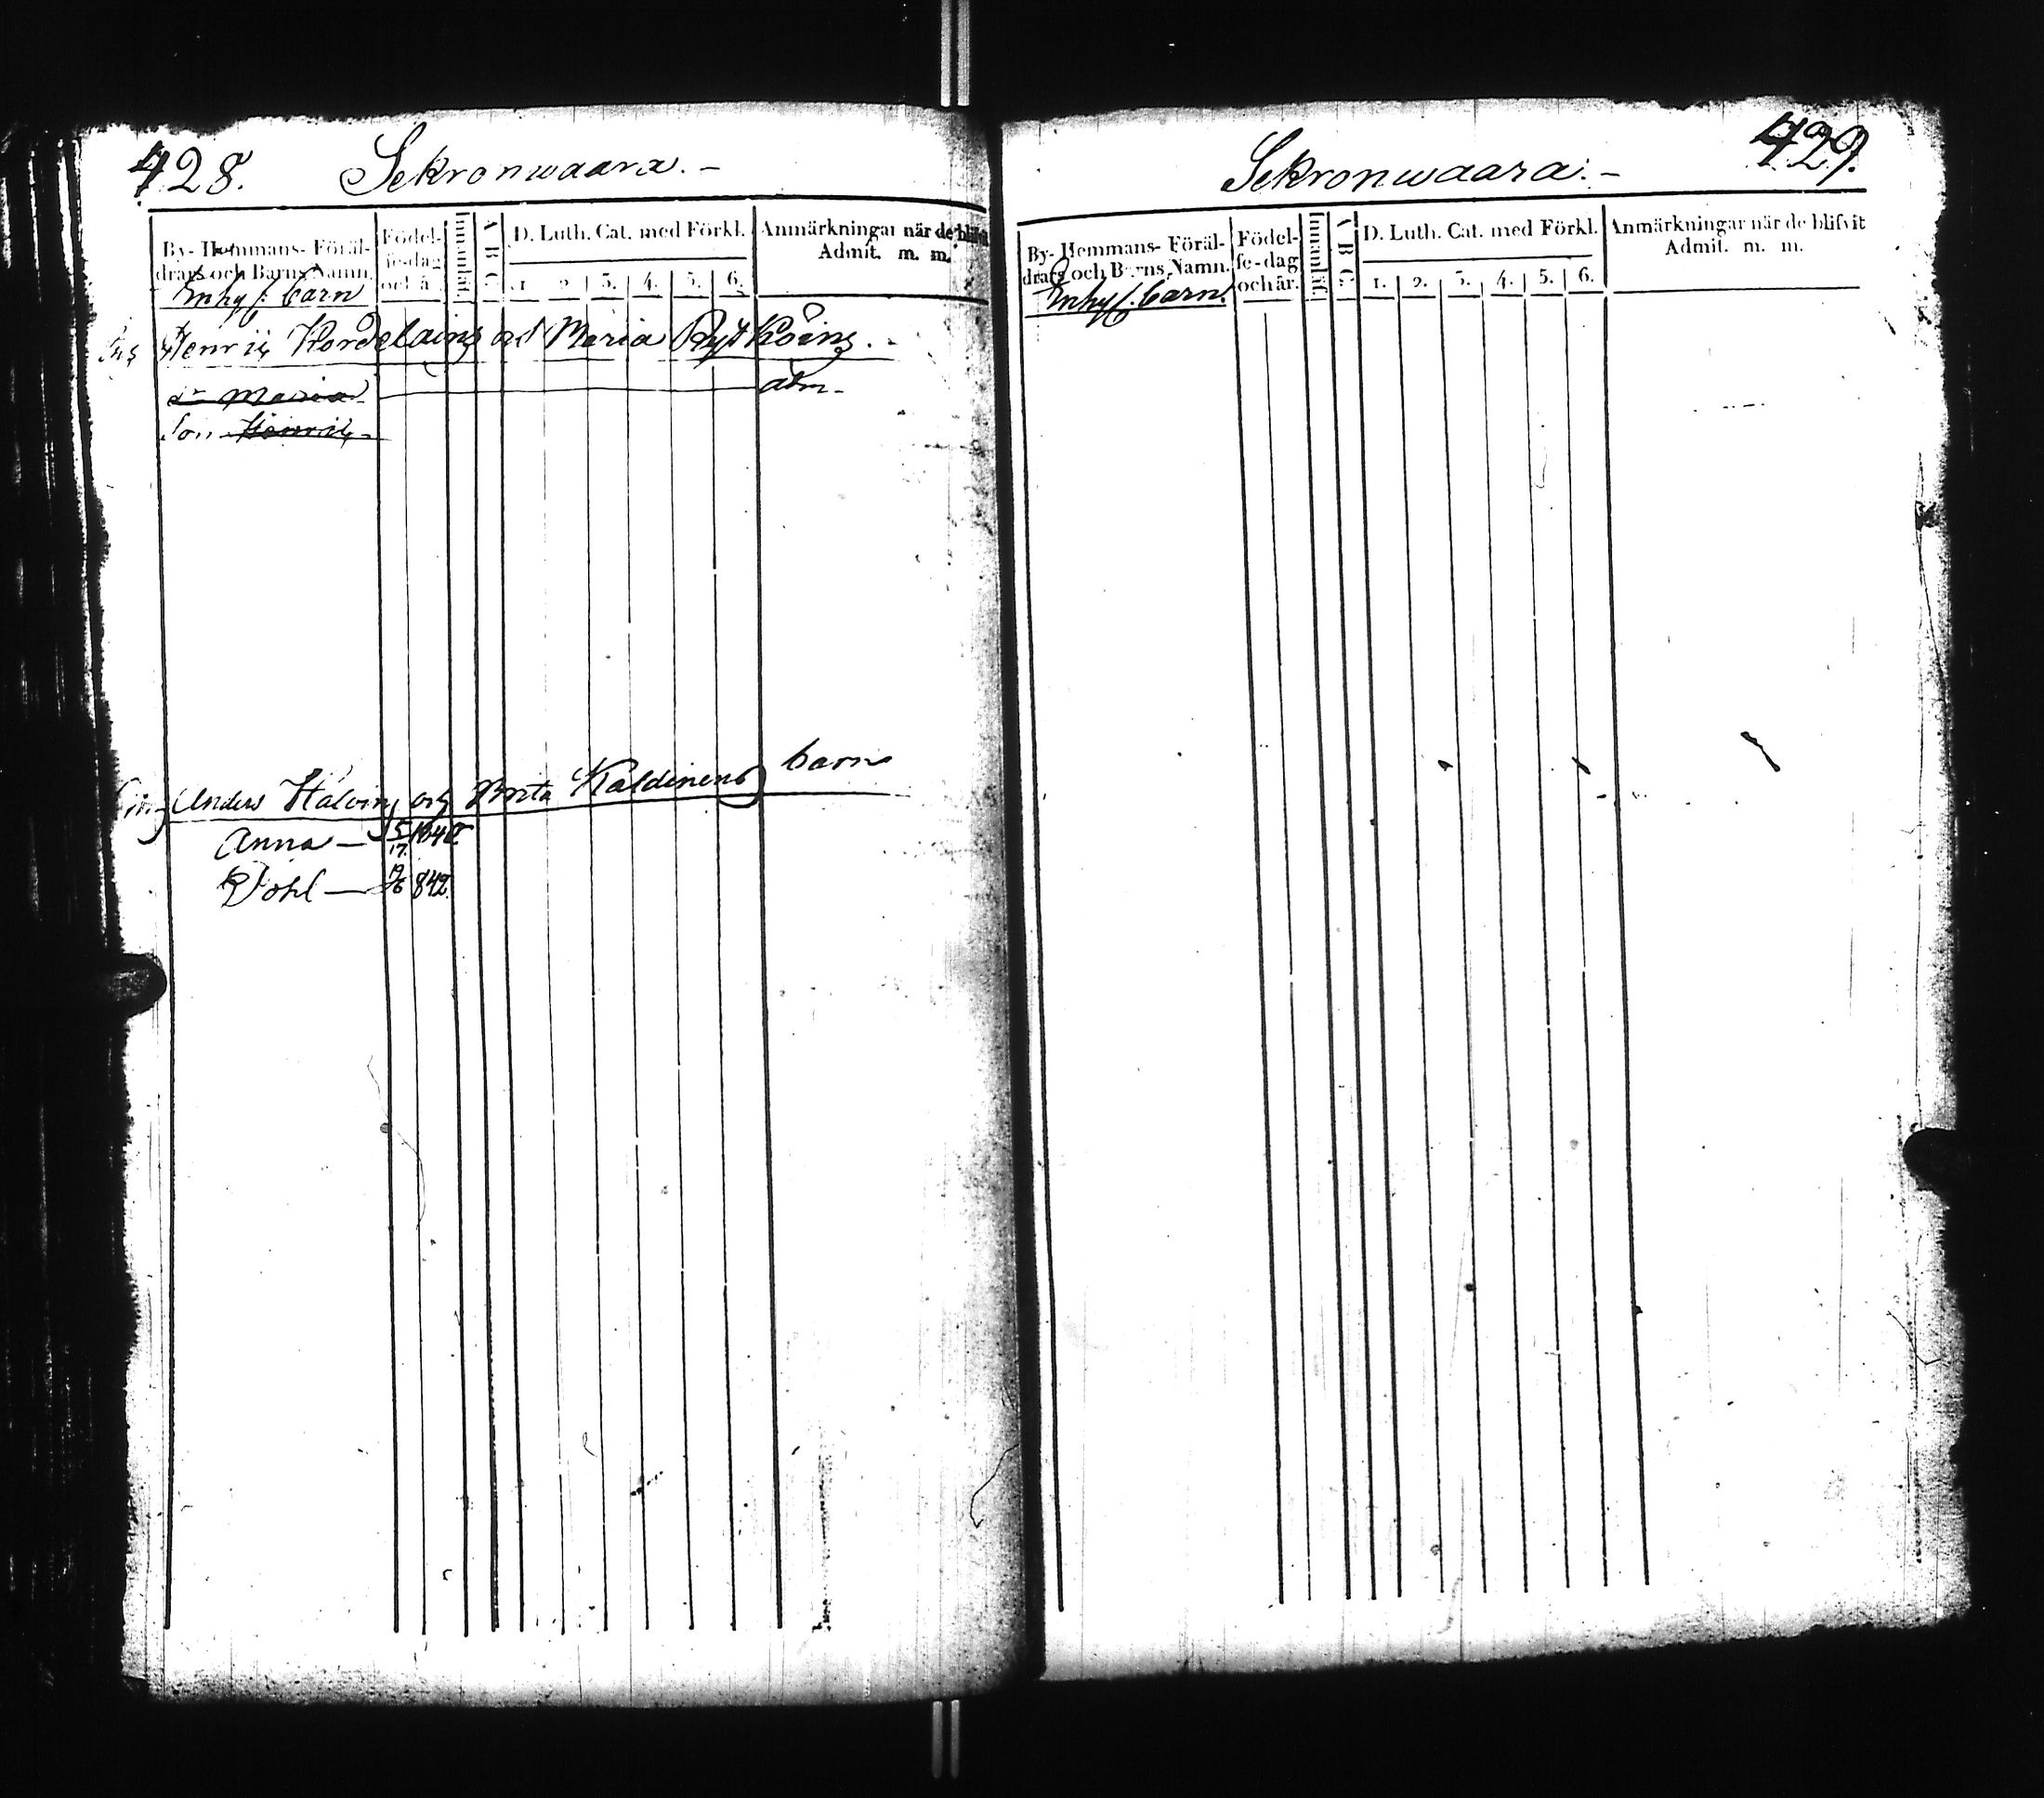 428. Sekronwaara. -
By- Hemmans- Föräldrars och Barns Namn.
Födelse-dag och å
Innanläs.
A B C
D. Luth. Cat. med Förkl.
1. 2. 3. 4. 5. 6.
Anmärkningar när de blifvit Admit. m. m.
Inhys. barn
Henric och Maria
d:r Maria adm.
Son Henric
Anders och Brita Kaldinens barn
Anna —
— 842.
429.
Sekronwaara. -
By- Hemmans- Föräldrars och Barns Namn.
Födelse-dag och är.
Innanläs.
A B C
D. Luth. Cat. med Förkl.
1. 2. 3. 4. 5. 6.
Anmärkningar när de blifvit Admit. m. m.
Inhys. barn.